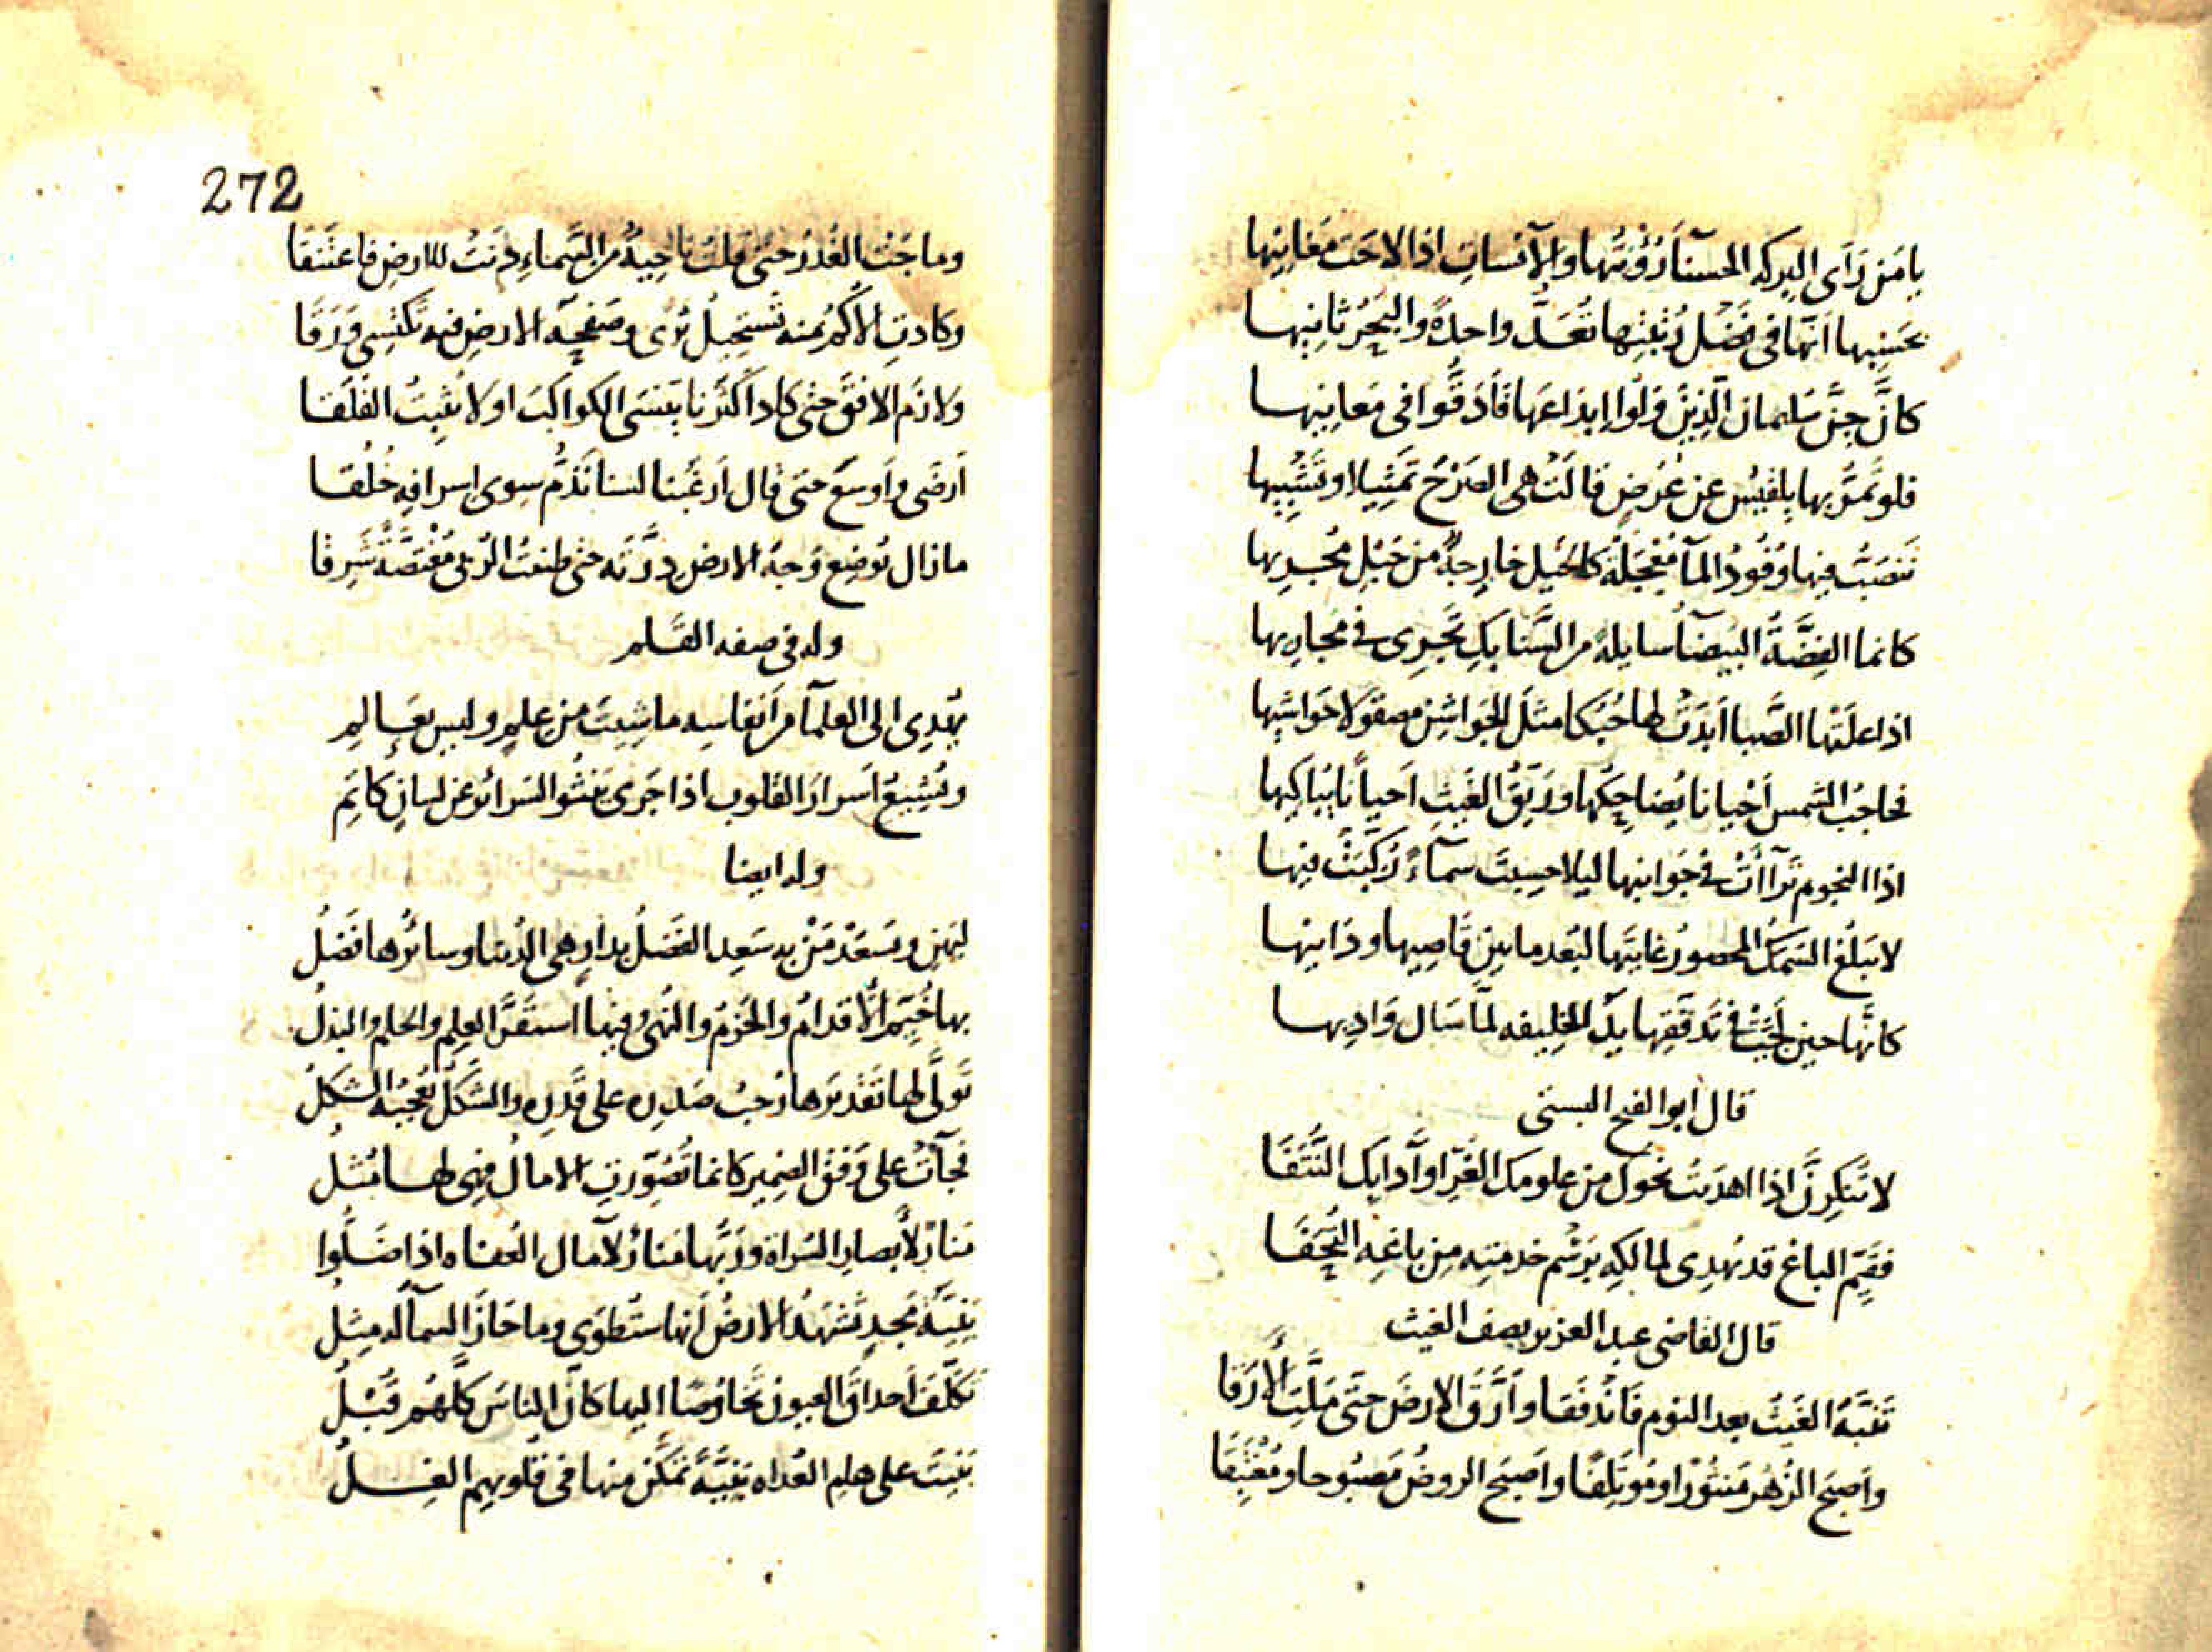 يا من رأى البركه الحسنآ رؤيتها والآنسات اذا لاحت مغانيها
بحسبها انها فى فضل رتبتها تعد واحدة والبحر ثانيها
كان جن سليمان الذين ولوا ابداعها فادقوا فى معانيها
فلو تمر بها بلقيس عن عرض قالت هى الصرح تمثيلا وتشبيها
تنصب فيها وفود المآ معجلة كالخيل خارجة من حبل مجريها
كانما الفضة البيضآ سايلة من السبايك تجرى فى مجاريها
اذا علتها الصبا ابدت لها حبكا مثل الجواشن مصقولا حواشيها
فحاجب الشمس احيانا يضاحكها وريق الغيث احيانا يباكيها
اذا النجوم ترآات فى جوانبها ليلا حسبت سمآء ركبت فيها
لا يبلغ السمك المحصور غايتها لبعد ما بين قاصيها ودانيها
كانها حين لجت فى تدفقها يد الخليفه لما سال واديها
قال ابو الفتح البستى
لا تنكرن اذا اهديت نحوك من علومك الغر او آدابك النتفا
فقيم الباغ قد يهدى لمالكه برسم خدمته من باغه التحفا
قال القاضى عبد العزيز يصف الغيث
تنبه الغيث بعد النوم فاندفقا وارق الارض حتى ملت الارقا
واصبح الزهر منثورا ومؤتلفا واصبح الروض مصبوحا ومغتبقا
272
وماجت الغدر حتى قلت ناحية من السماء دنت للارض فاعتنقا
وكادت الاكم منه تستحيل ثرى وصفحة الارض فيه تكتسى ورقا
ولازم الافق حتى كاد اكثرنا ينسى الكواكب او لا يثبت الفلقا
ارضى واوسع حتى قال ارغبنا لسنا نذم سوى اسرافه خلقا
مازال توضع وجه الارض درته حتى طفت الربى مغتصة شرقا
وله فى صفه القلم
يهدى الى العلمآ من انفاسه ما شيت من علم وليس بعالم
ويشيع اسرار القلوب اذا جرى بنثو السرائر عن لسان كاتم
وله ايضا
ليهن ويسعد من به سعد الفضل بدار هى الدنيا وسائرها فضل
بها خيم الاقدام والحزم والنهى وفيها استقر العلم والحلم والبذل
تولى لها تقديرها رحب صدره على قدره والشكل يعجبه الشكل
فجآت على وفق الضمير كانما تصورت الامال فهى لها مثل
منار لابصار السراة وربها منار لآمال العفاه اذا ضلوا
بنية مجد تشهد الارض انها ستطوى وما حاز السمآ له مثل
تكلف احداق العيون تخاوصا اليها كان الناس كلهم قبل
بنيت على هام العداه بنية تمكن منها فى قلوبهم الغل